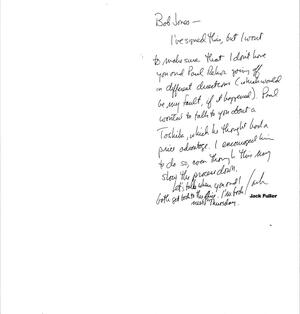 Bob Jones —
I've signed this, but I want
to make sure that I don't have
you and Paul going off
in different directions (which would
be my fault, if it happened). Paul
wanted to talk to you about a
Toshiba, which he thought had a
price advantage. I encouraged him
to do so, even though this may
slow the process down.
Let's talk when you and I
both get back to the office. I'm back
next Thursday.
Jack
Jack Fuller